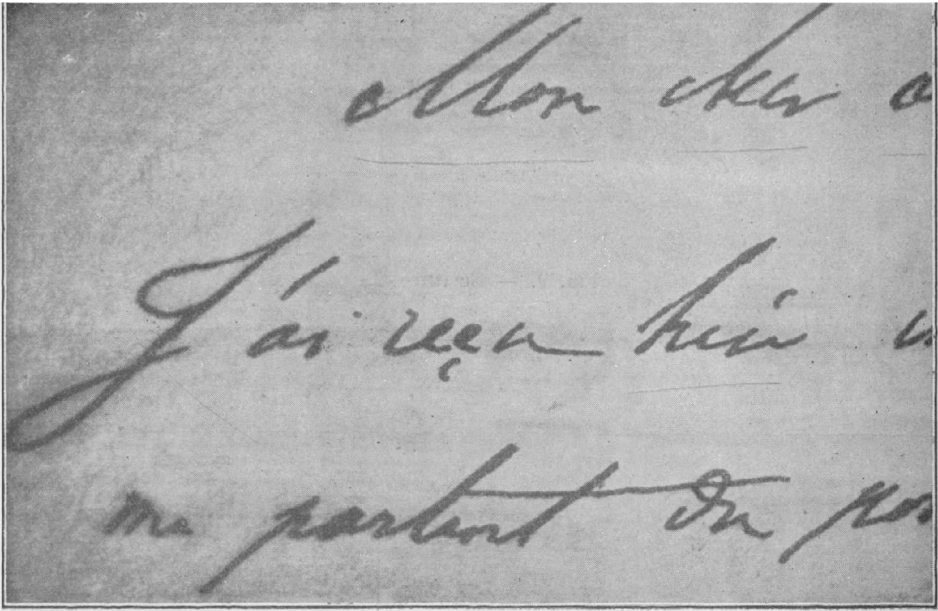 Mon cher a
J'ai reçu hier u
me parlant du po